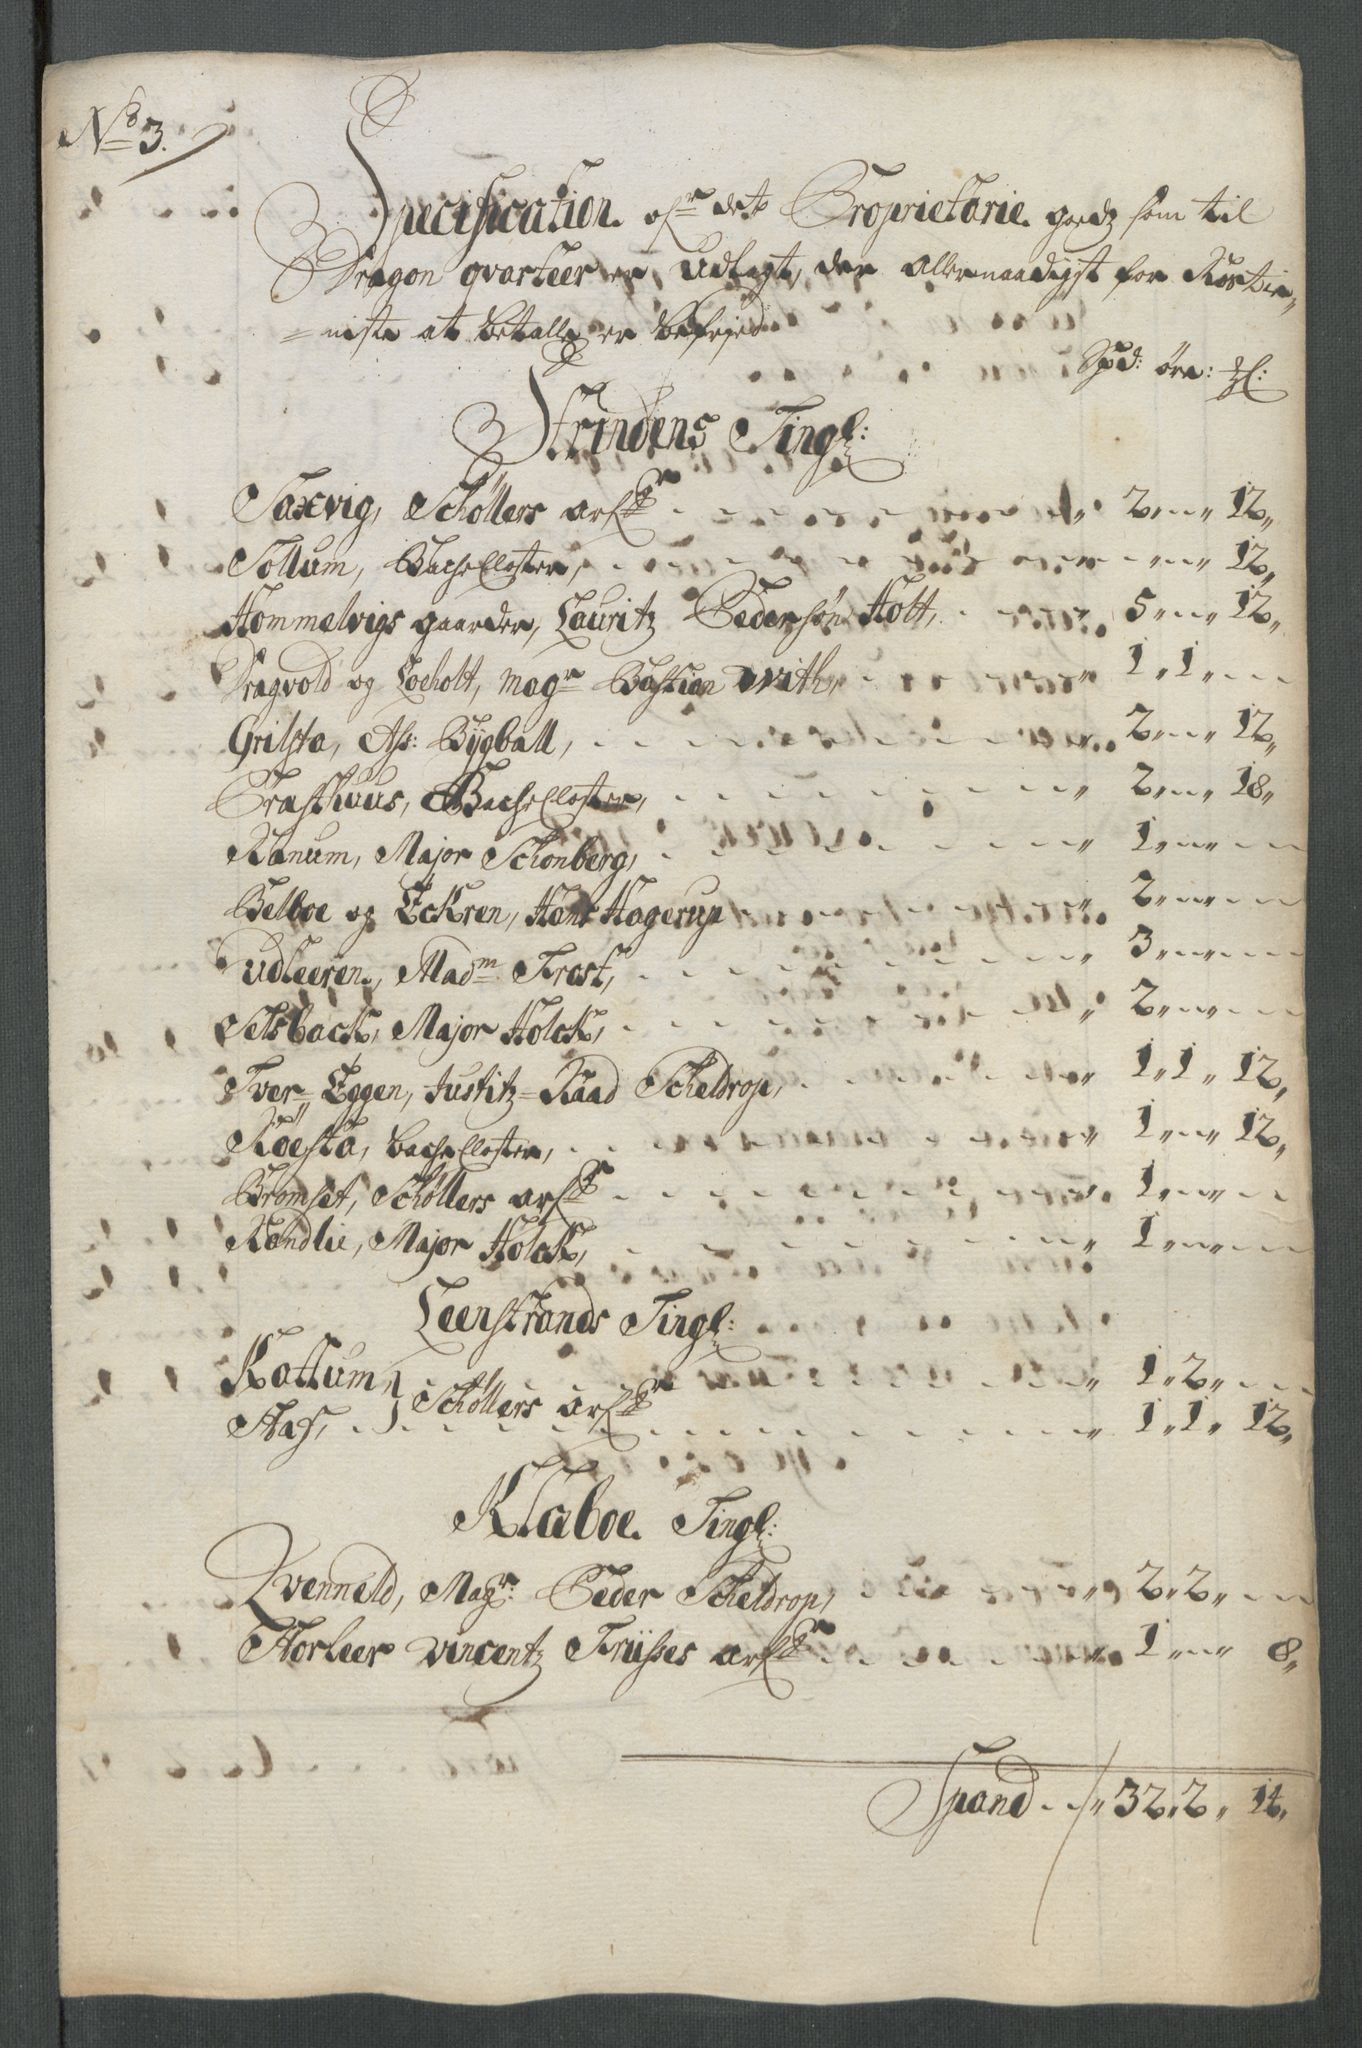 No 3.
Specification ofr det Proprietarie godtz som til
Dragon qvarteer er Udlagt, der allernaadigst for Rostie-
=niste at betalle er befriet
Spd: öre: ℔:
Strindens Tingl:
Saxvig, Schöllers arf: 2 „ „ 12„
Sollum, Bache Closter, „ „ 12„
Hommelvigs gaarder, Lauritz Pedersön Holt, 5 „ „ 12„
Dragvold og Loeholt, Magr Bastian With, 1„ 1„
Grilsta, Ass: Bÿgball, 2 „ „ 12„
Præsthuus, Bache Closter, 2 „ „ 18„
Ranum, Major Schonberg, 1 „ „
Belboe og Eckren, Hans Hagerup 2 „ „
Udleeren, Madm Frost, 3 „ „
Selsback, Major Holck, 2 „ „
Tver= Eggen, Justitz=Raad Scheldrop, 1„ 1„ 12„
Roesta, Bache Closter, 1 „ „ 12„
Bromset, Schöllers arf: 1 „ „
Kandlie, Major Holck, 1 „ „
Leenstrands Tingl:
Kottum, 1„ 2„
Schöllers arf:
Hass, 1„ 1„ 12„
Klaboe Tingl:
Qvenneld, Magr: Peder Scheldrop, 2„ 2„
Horleer Vincentz Friisses arf: 1 „ „ 8„
Spand 32„ 2„ 14„